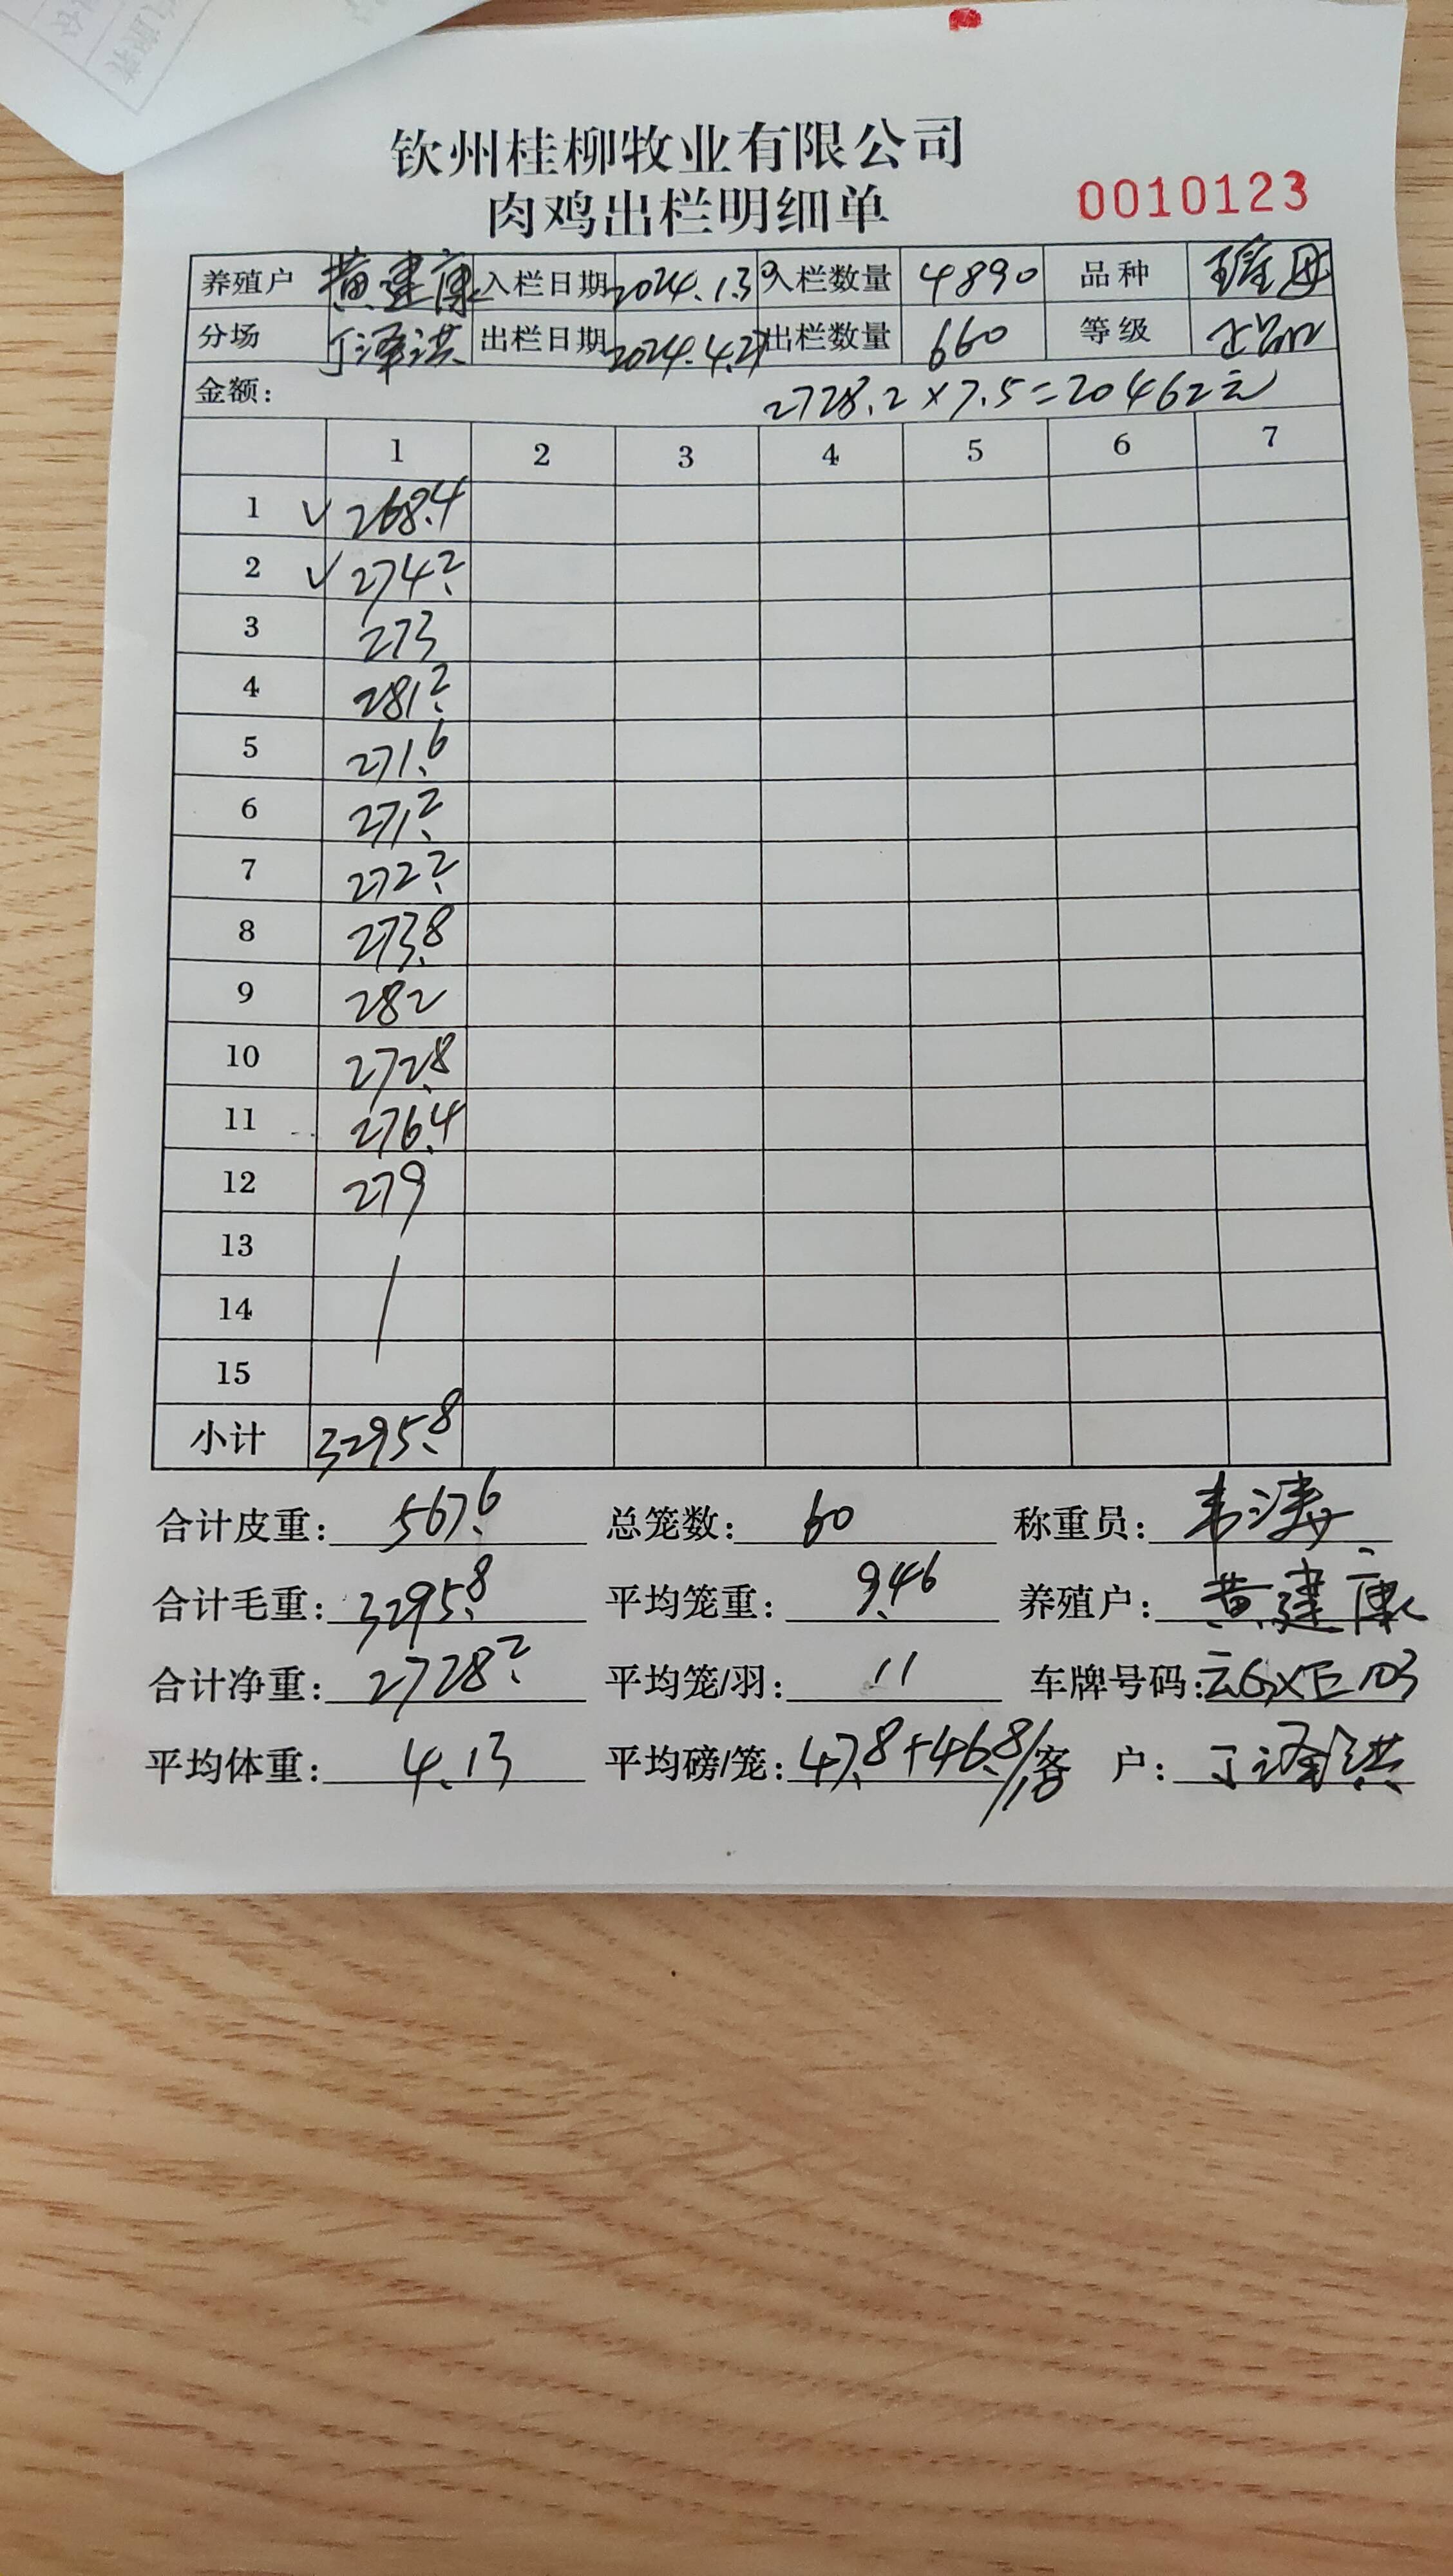 钦州桂柳牧业有限公司
肉鸡出栏明细单 0010123
养殖户 黄建康 入栏日期 2024.1.30 入栏数量 4890 品种
分场 丁泽洪 出栏日期 2024.4.27 出栏数量 660 等级 正品
金额: 2728.2×7.5=20462元
1 2 3 4 5 6 7
1 ✓ 268.4
2 ✓ 274.2
3 273
4 281.2
5 271.6
6 271.2
7 272.2
8 273.8
9 282
10 272.8
11 276.4
12 279
13
14
15
小计 3295.8
合计皮重: 567.6 总笼数: 60 称重员: 韦涛
合计毛重: 3295.8 平均笼重: 9.46 养殖户: 黄建康
合计净重: 2728.2 平均笼/羽: 11 车牌号码:
平均体重: 4.13 平均磅/笼: 47.8+46.8/10 客 户: 丁泽洪